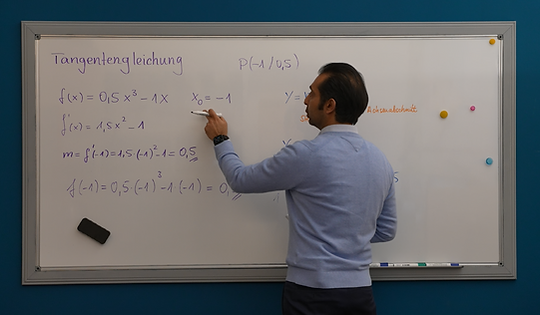 Tangentengleichung
P(-1/0,5)
f(x) = 0,5x³ - 1x    x₀ = -1
f'(x) = 1,5x² - 1
m = f'(-1) = 1,5·(-1)² - 1 = 0,5
f(-1) = 0,5·(-1)³ - 1·(-1) = 0,
y =
Achsenabschnitt